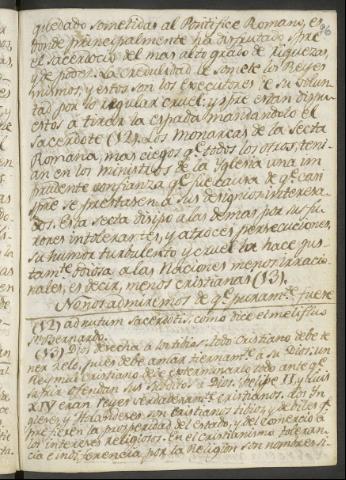 quedado sometidas al Pontifice Romano, es
donde principalmente ha disfrutado spre
el Sacerdocio del mas alto grado de riquezas,
y de poder. La credulidad le somete los Reyes
mismos, y estos son los executores de su volun-
tad por lo regular cruel: y spre estan dispu-
estos a tirar la espada mandandolo el
Sacerdote (12). Los Monarcas de la Secta
Romana, mas ciegos qe. todos los otros, tení-
an en los ministros de la Yglesia una im
prudente confianza qe. fue causa de qe. casi
spre se prestasen a sus designios interesa-
dos. Esta Secta á las demas por sus fu-
rores intolerantes, y atroces persecuciones,
su humor turbulento y cruel la hace jus-
tamte. odiosa a las Naciones menos irracio-
nales, es decir, menos cristianas (13).
No nos admiremos de qe. puramte. fuese
(12) ad nutum Sacerdotis, como dice el melifluo
Sn. Bernardo.
(13) Dios desecha a los tibios: todo Cristiano debe te-
ner zelo, pues debe amar tiernamte. a su Dios: un
Rey mui Cristiano debe exterminarlo todo antes qe.
sufrir ofendan sus subditos a Dios. Phelipe II, y Luis
XIV eran Reyes verdaderamte. cristianos. Los Yn
gleses, y Holandeses son cristianos tibios, y debiles qe.
prefieren la prosperidad del Estado, y del Comercio a
los intereses religiosos. En el cristianismo toleran-
cia e indiferencia por la Religion son nombres si-